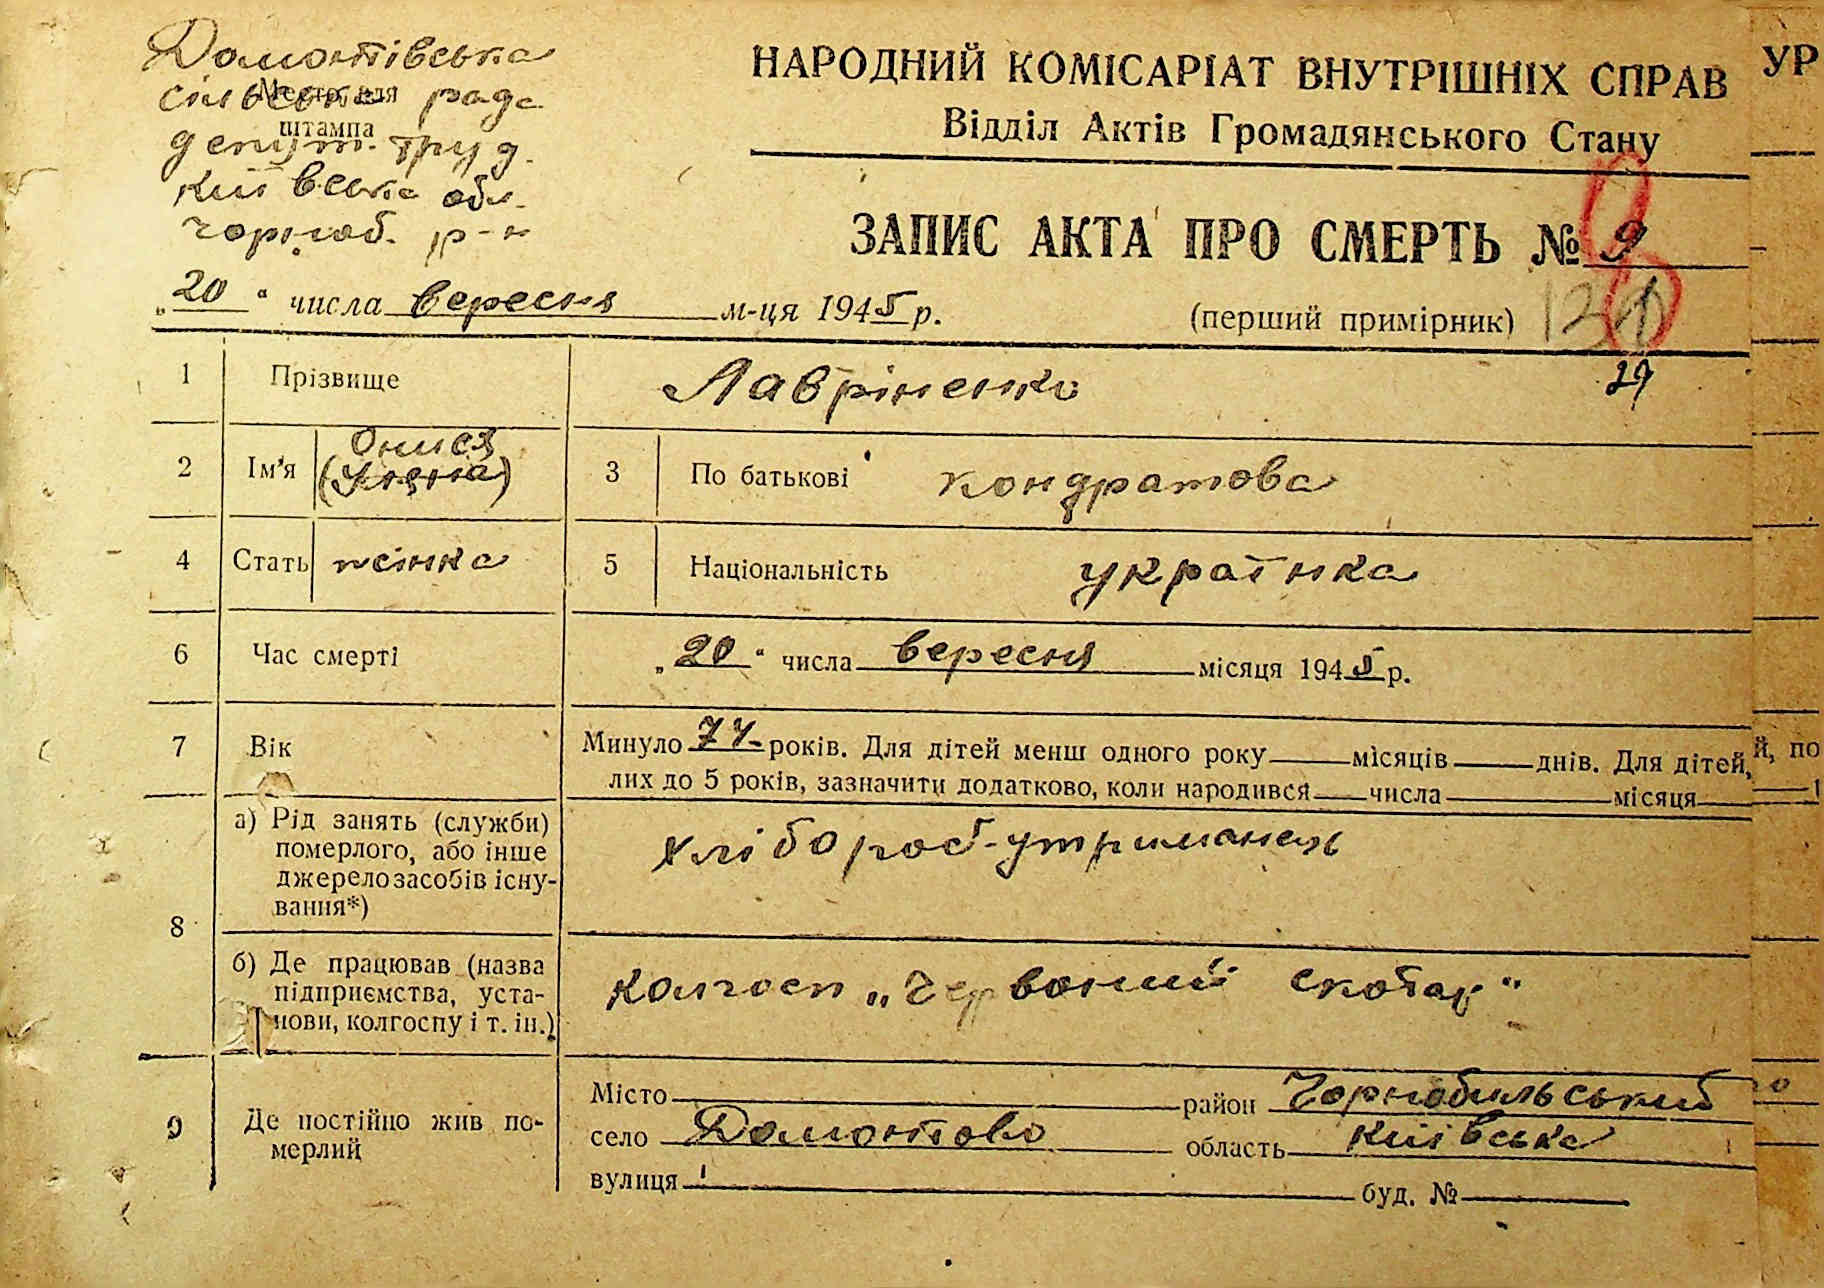 Домонтівська
сільська рада
Место для
штампа
депут. труд.
Київська обл.
Чорноб. р-н
НАРОДНИЙ КОМІСАРІАТ ВНУТРІШНІХ СПРАВ
УР
Відділ Актів Громадянського Стану
ЗАПИС АКТА ПРО СМЕРТЬ № 9
„20“ числа вересня м-ця 1945 р.
(перший примірник)
29
1 Прізвище Лавріненко
2 Ім'я Онися
3 По батькові Кондратова
4 Стать жінка 5 Національність українка
6 Час смерті „20“ числа вересня місяця 1945 р.
7 Вік Минуло 74 років. Для дітей менш одного року місяців днів. Для дітей, й, по
лих до 5 років, зазначити додатково, коли народився числа місяця
8 а) Рід занять (служби)
померлого, або інше
джерело засобів існу-
вання*)
хлібороб-утриманець
б) Де працював (назва
підприємства, уста-
нови, колгоспу і т. ін.)
Колгосп „Червоний скотар"
9 Де постійно жив по-
мерлий
Місто район Чорнобильський
село Домонтово область Київська
вулиця буд. №